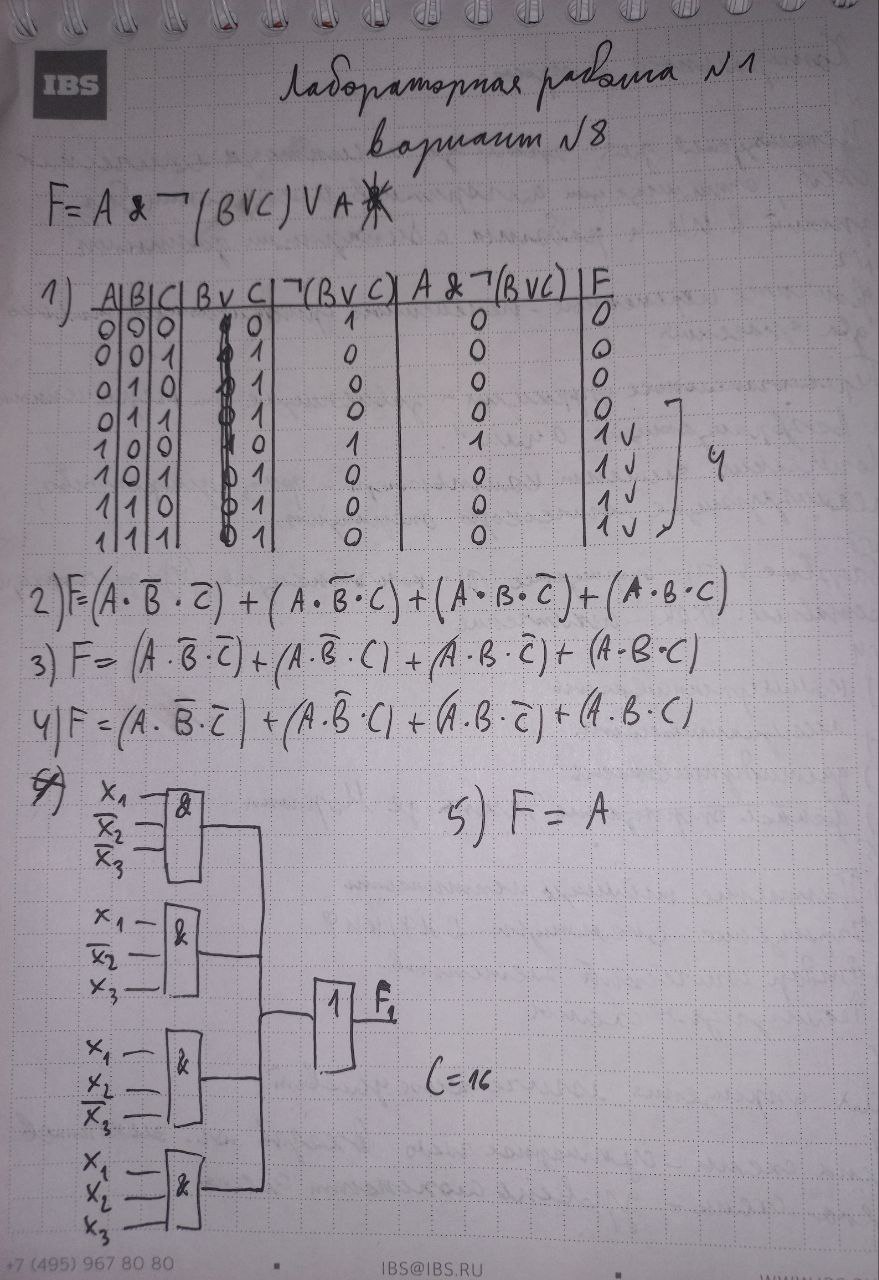 IBS
Лабораторная работа N1
вариант N8
F = A & ¬ (B V C) V A
1) A B C B V C ¬(B V C) A & ¬(B V C) F
0 0 0 0 1 0 0
0 0 1 1 0 0 0
0 1 0 1 0 0 0
0 1 1 1 0 0 0
1 0 0 0 1 1 1 ✓
1 0 1 1 0 0 1 ✓ 4
1 1 0 1 0 0 1 ✓
1 1 1 1 0 0 1 ✓
2) F = (A · B̅ · C̅) + (A · B̅ · C) + (A · B · C̅) + (A · B · C)
3) F = (A · B̅ · C̅) + (A · B̅ · C) + (A · B · C̅) + (A · B · C)
4) F = (A · B̅ · C̅) + (A · B̅ · C) + (A · B · C̅) + (A · B · C)
5) F = A
x₁ &
x̅₂
x̅₃
x₁ &
x̅₂
x₃
1 F₁
x₁ &
x₂
x̅₃
C = 16
x₁ &
x₂
x₃
+7 (495) 967 80 80 IBS@IBS.RU